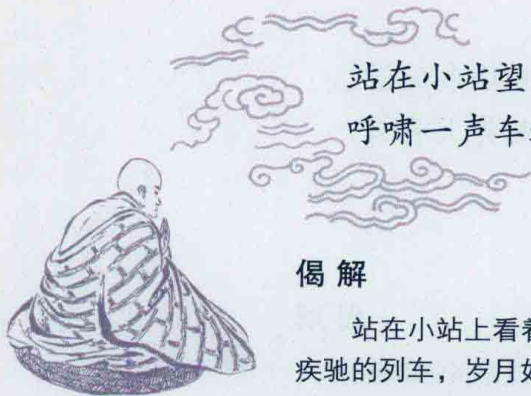 站在小站望
呼啸一声车
偈解
站在小站上看着
疾驰的列车，岁月如